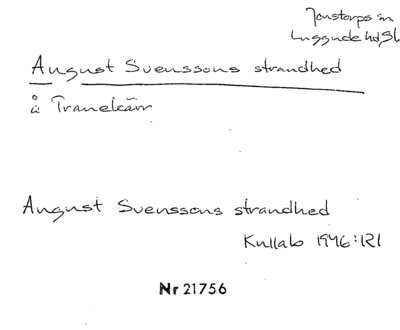 Jonstorps sn
Luggude hd, Sk
August Svenssons strandhed
å Tranekärr
August Svenssons strandhed
Kullab 1946:121
Nr 21756